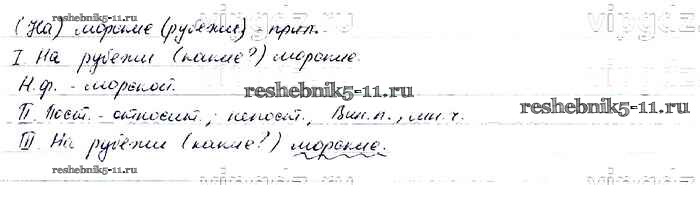 (На) морские (рубежи) - прил.
I На рубежи (какие?) морские.
Н.ф. - морской.
II Пост. - относит., непост., Вин.п., мн.ч.
III На рубежи (какие?) морские.
reshebnik5-11.ru
reshebnik5-11.ru
reshebnik5-11.ru
reshebnik5-11.ru
reshebnik5-11.ru